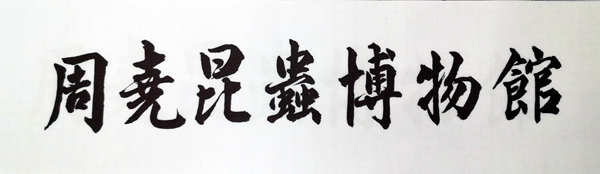 周堯昆蟲博物館